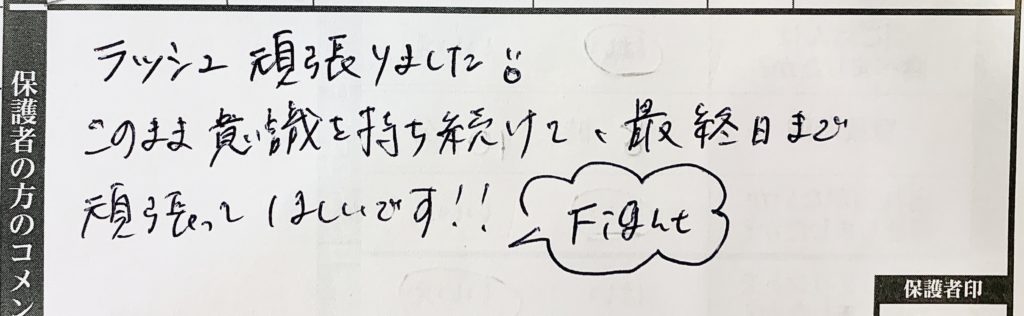 保護者の方のコメン
ラッシュ 頑張りました
このまま意識を持ち続けて、最終日まで
頑張ってほしいです!!
Fight
保護者印